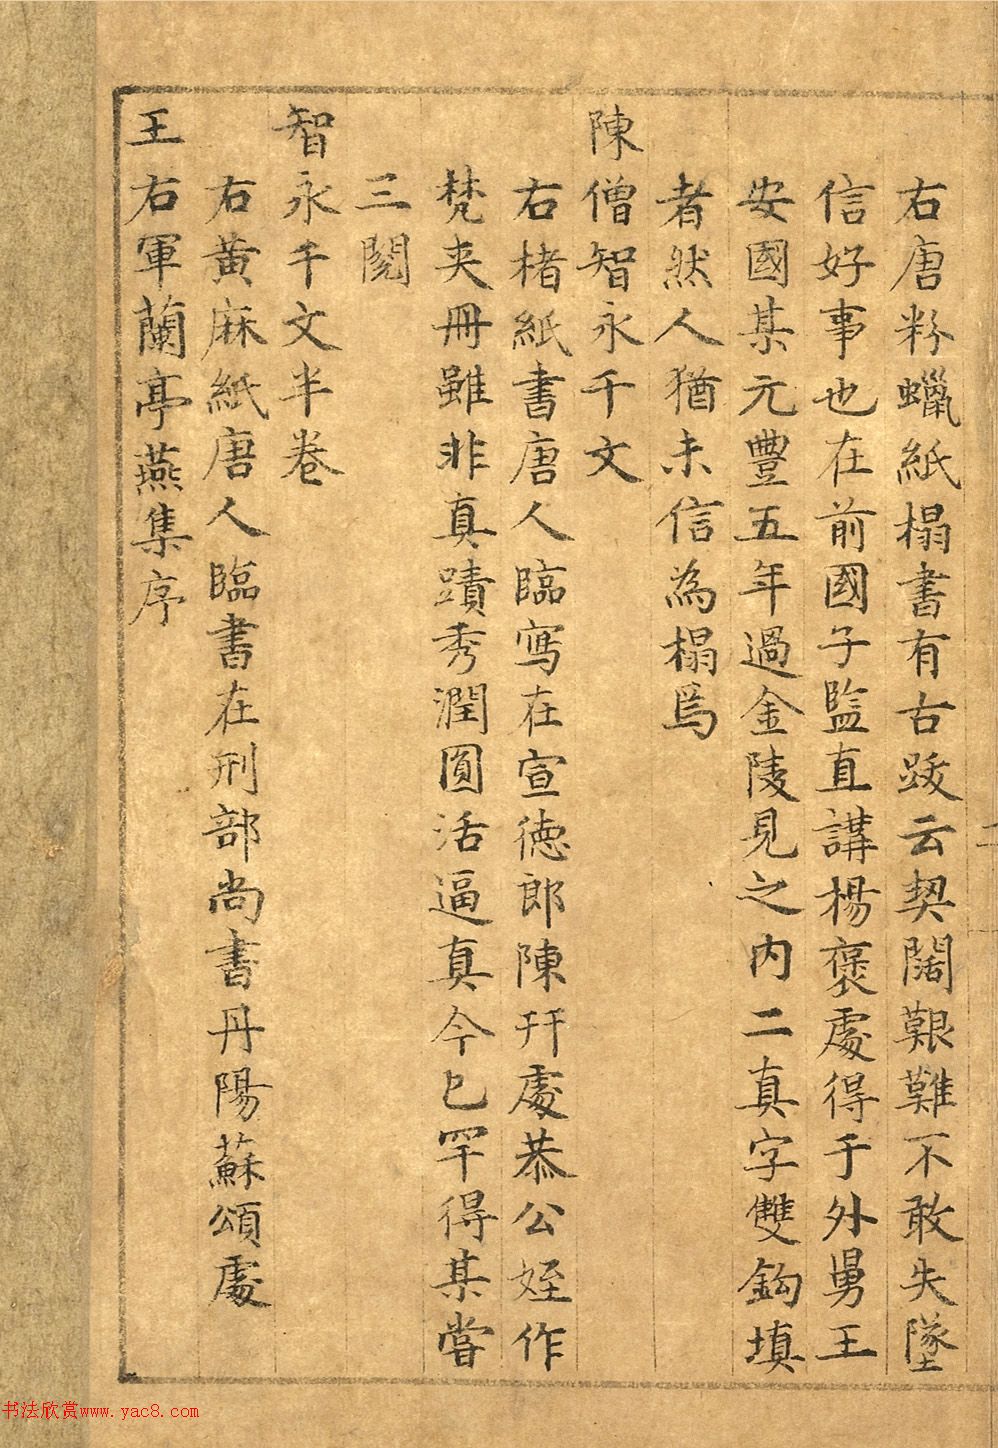 右唐粉蠟紙榻書有古跋云契闊艱難不敢失墜
信好事也在前國子監直講楊褒處得于外舅王
安國某元豐五年過金陵見之內二真字雙鈎填
者然人猶未信為榻焉
陳僧智永千文
右楮紙書唐人臨寫在宣德郎陳幵處恭公姪作
梵夾冊雖非真蹟秀潤圓活逼真今已罕得某嘗
三閱
智永千文半卷
右黄麻紙唐人臨書在刑部尚書丹陽蘇頌處
王右軍蘭亭燕集序
二
书法欣赏www.yac8.com